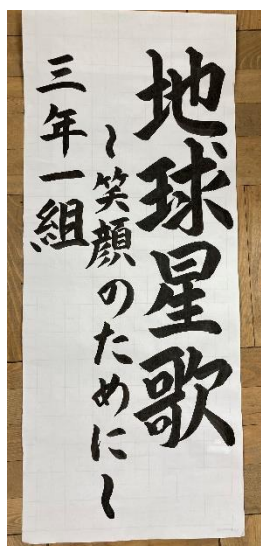 地球星歌
~笑顔のために~
三年一組